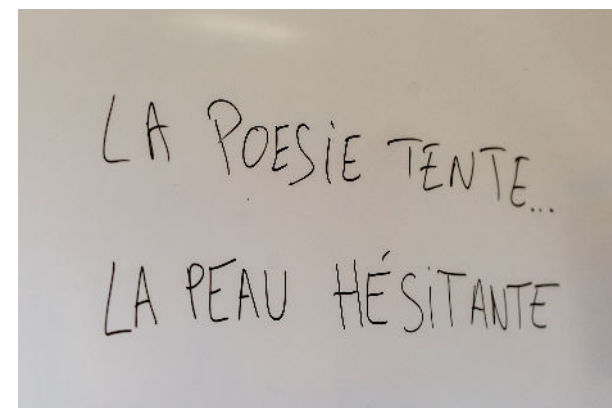 LA POESIE TENTE...
LA PEAU HÉSITANTE